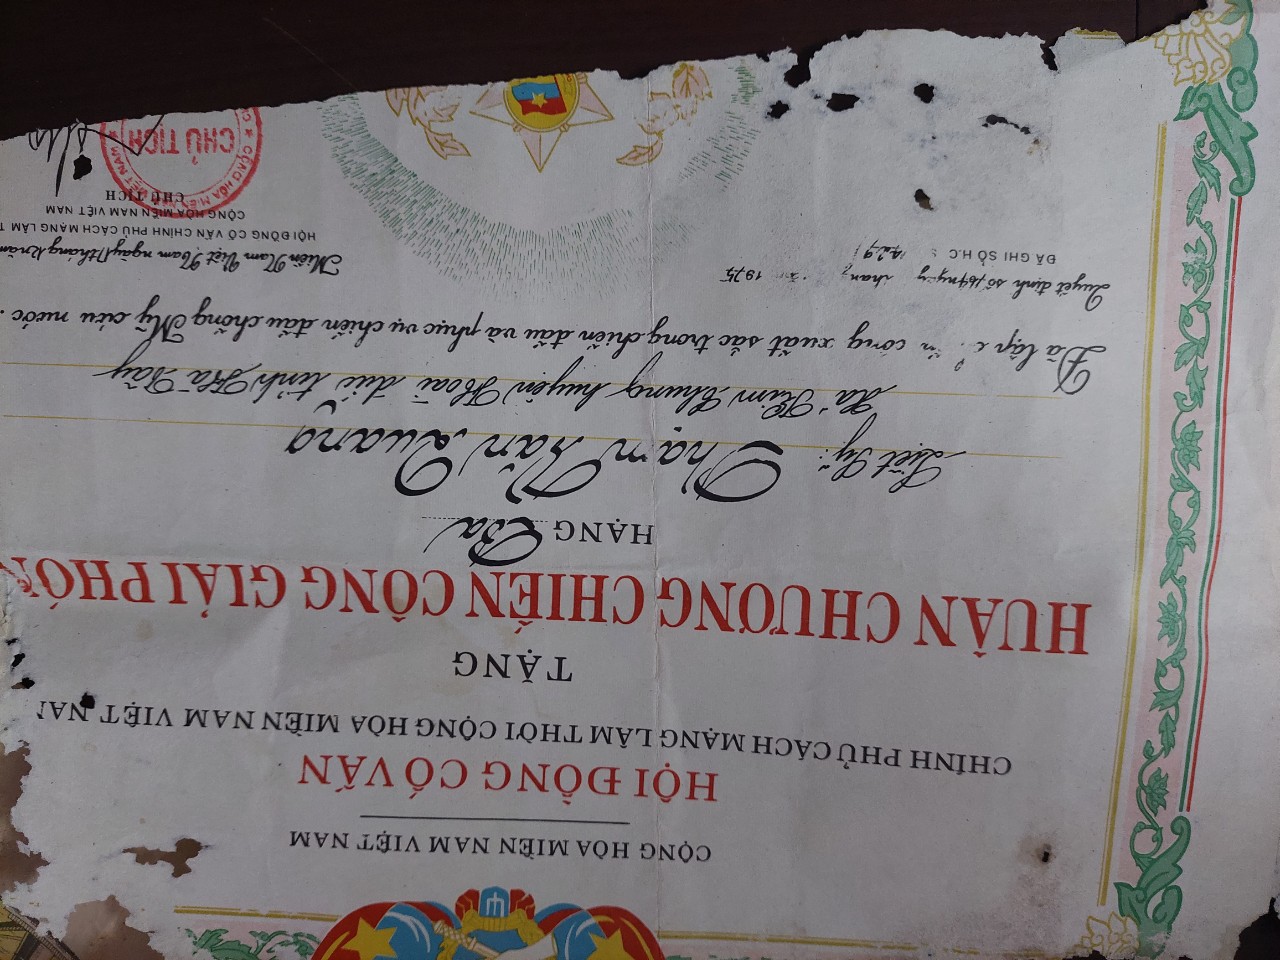 CỘNG HÒA MIỀN NAM VIỆT NAM
HỘI ĐỒNG CỐ VẤN
CHÍNH PHỦ CÁCH MẠNG LÂM THỜI CỘNG HÒA MIỀN NAM VIỆT NAM
TẶNG
HUÂN CHƯƠNG CHIẾN CÔNG GIẢI PHÓN
HẠNG Ba
Liệt Sỹ: Phạm Văn Quang
Xã Kim Chung huyện Hoài đức tỉnh Hà Tây
Đã lập công xuất sắc trong chiến đấu và phục vụ chiến đấu chống Mỹ cứu nước.
Quyết định số 164 ngày 1975
ĐÃ GHI SỔ H.C
Miền Nam Việt Nam ngày tháng năm
HỘI ĐỒNG CỐ VẤN CHÍNH PHỦ CÁCH MẠNG LÂM T
CỘNG HÒA MIỀN NAM VIỆT NAM
CHỦ TỊCH
CỘNG HÒA MIỀN NAM VIỆT NAM
CHỦ TỊCH